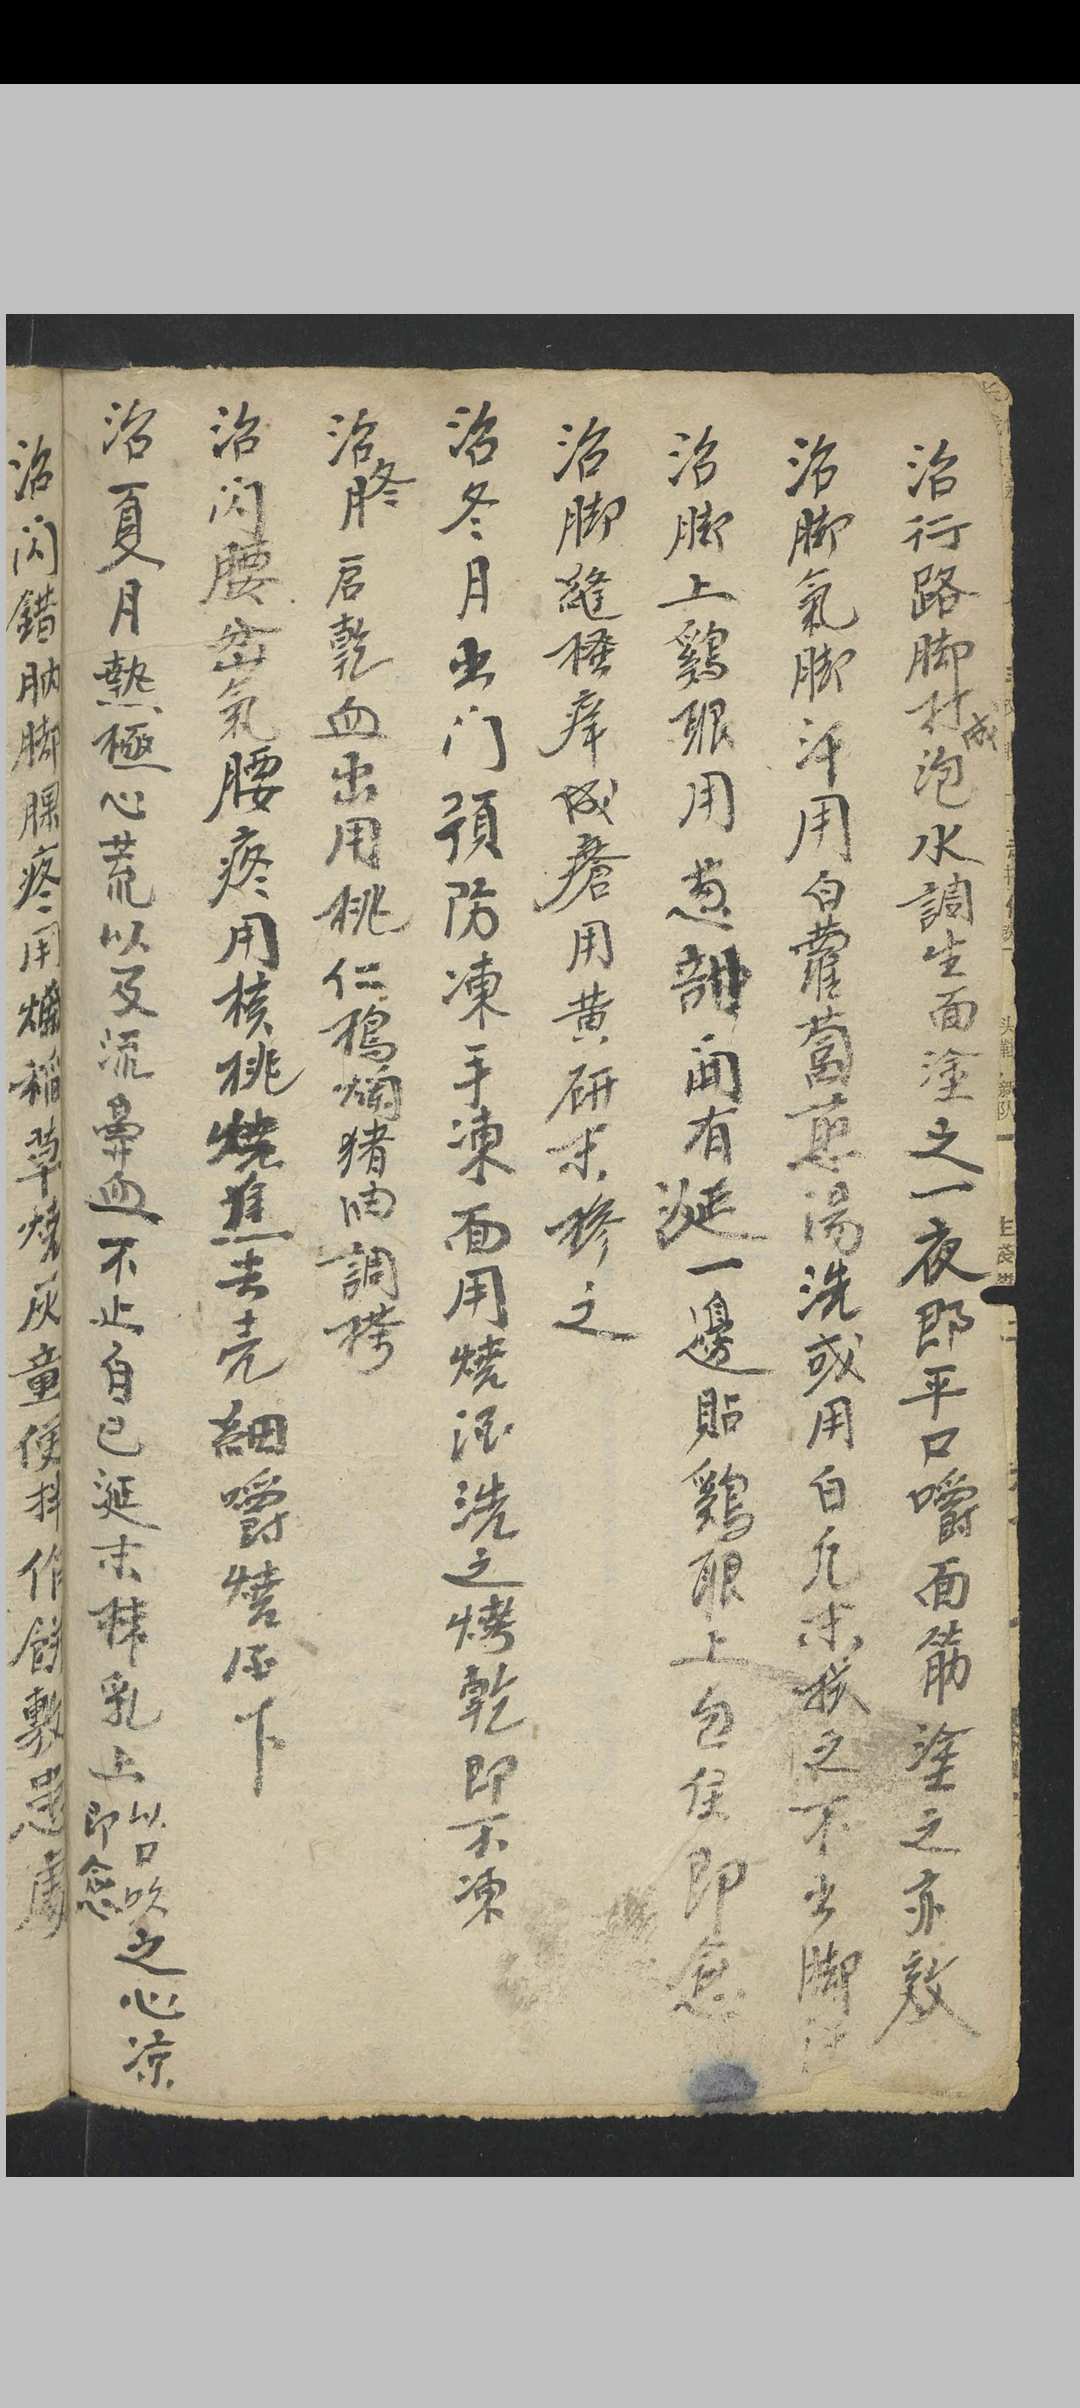 治行路脚打成泡水調生面塗之一夜即平口嚼面筋塗之亦效
治脚氣脚汗用白蘿蔔煎湯洗或用白凡末搽之不出脚汗
治脚上鷄眼用葱剖開有涎一邊貼鷄眼上包住即愈
治脚縫癢成瘡用黄研末摻之
治冬月出门預防凍手凍面用燒酒洗之烤乾即不凍
治冬月唇乾血出用桃仁搗爛猪油調搽
治闪腰岔氣腰疼用核桃燒焦去壳細嚼燒酒下
治夏月熱極心荒以及流鼻血不止自己涎末抹乳上以口吹之心凉即愈
治闪錯脚踝疼用爛稻草燒灰童便拌作餅敷患處